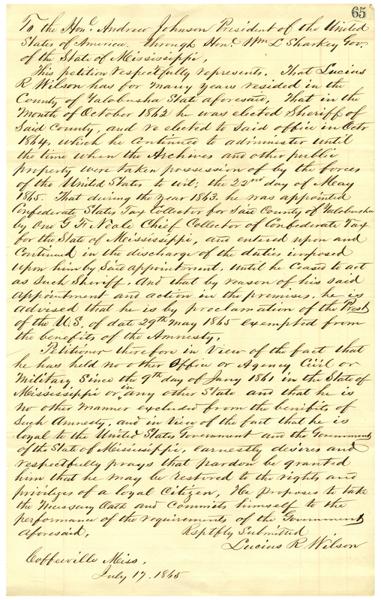 65
To the Hon. Andrew Johnson President of the United
States of America, through Hon. Wm L Sharkey Gov.
of the State of Mississippi,
This petition respectfully represents. That Lucius
R Wilson has for many years resided in the
County of Yalobusha State aforesaid, That in the
Month of October 1862 he was elected Sheriff of
Said County, and re elected to said office in Octr
1864, which he continued to administer until
the time when the Archives and other public
property were taken possession of by the forces
of the United States to wit; the 22nd day of May
1865. That during the year 1863. he was appointed
Confederate States Tax Collector for said County of Yalobusha
by One G. Neale Chief Collector of Confederate Tax
for the State of Mississippi, and entered upon and
Continued in the discharge of the duties imposed
upon him by said appointment, until he ceased to act
as Such Sheriff, and that by reason of his said
appointment and action in the premises, he is
advised that he is by proclamation of the Prest
of the U.S. of date 29th May 1865 exempted from
the benefits of the Amnesty,
Petitioner therefore in View of the fact that
he has held no other Office or Agency Civil or
Military Since the 9th day of Jany 1861 in the State of
Mississippi or in any other State and that he is
no other manner excluded from the benefits of
Such Amnesty, and in View of the fact that he is
loyal to the United States Government and the Government
of the State of Mississippi, earnestly desires and
respectfully prays that pardon be granted
him that he may be restored to the rights and
privileges of a loyal Citizen, He proposes to take
the Necessary Oath and Commits himself to the
performance of the requirements of the Government
aforesaid, Rsptfly Submitted
Lucius R. Wilson
Coffeeville Miss,
July 17. 1865